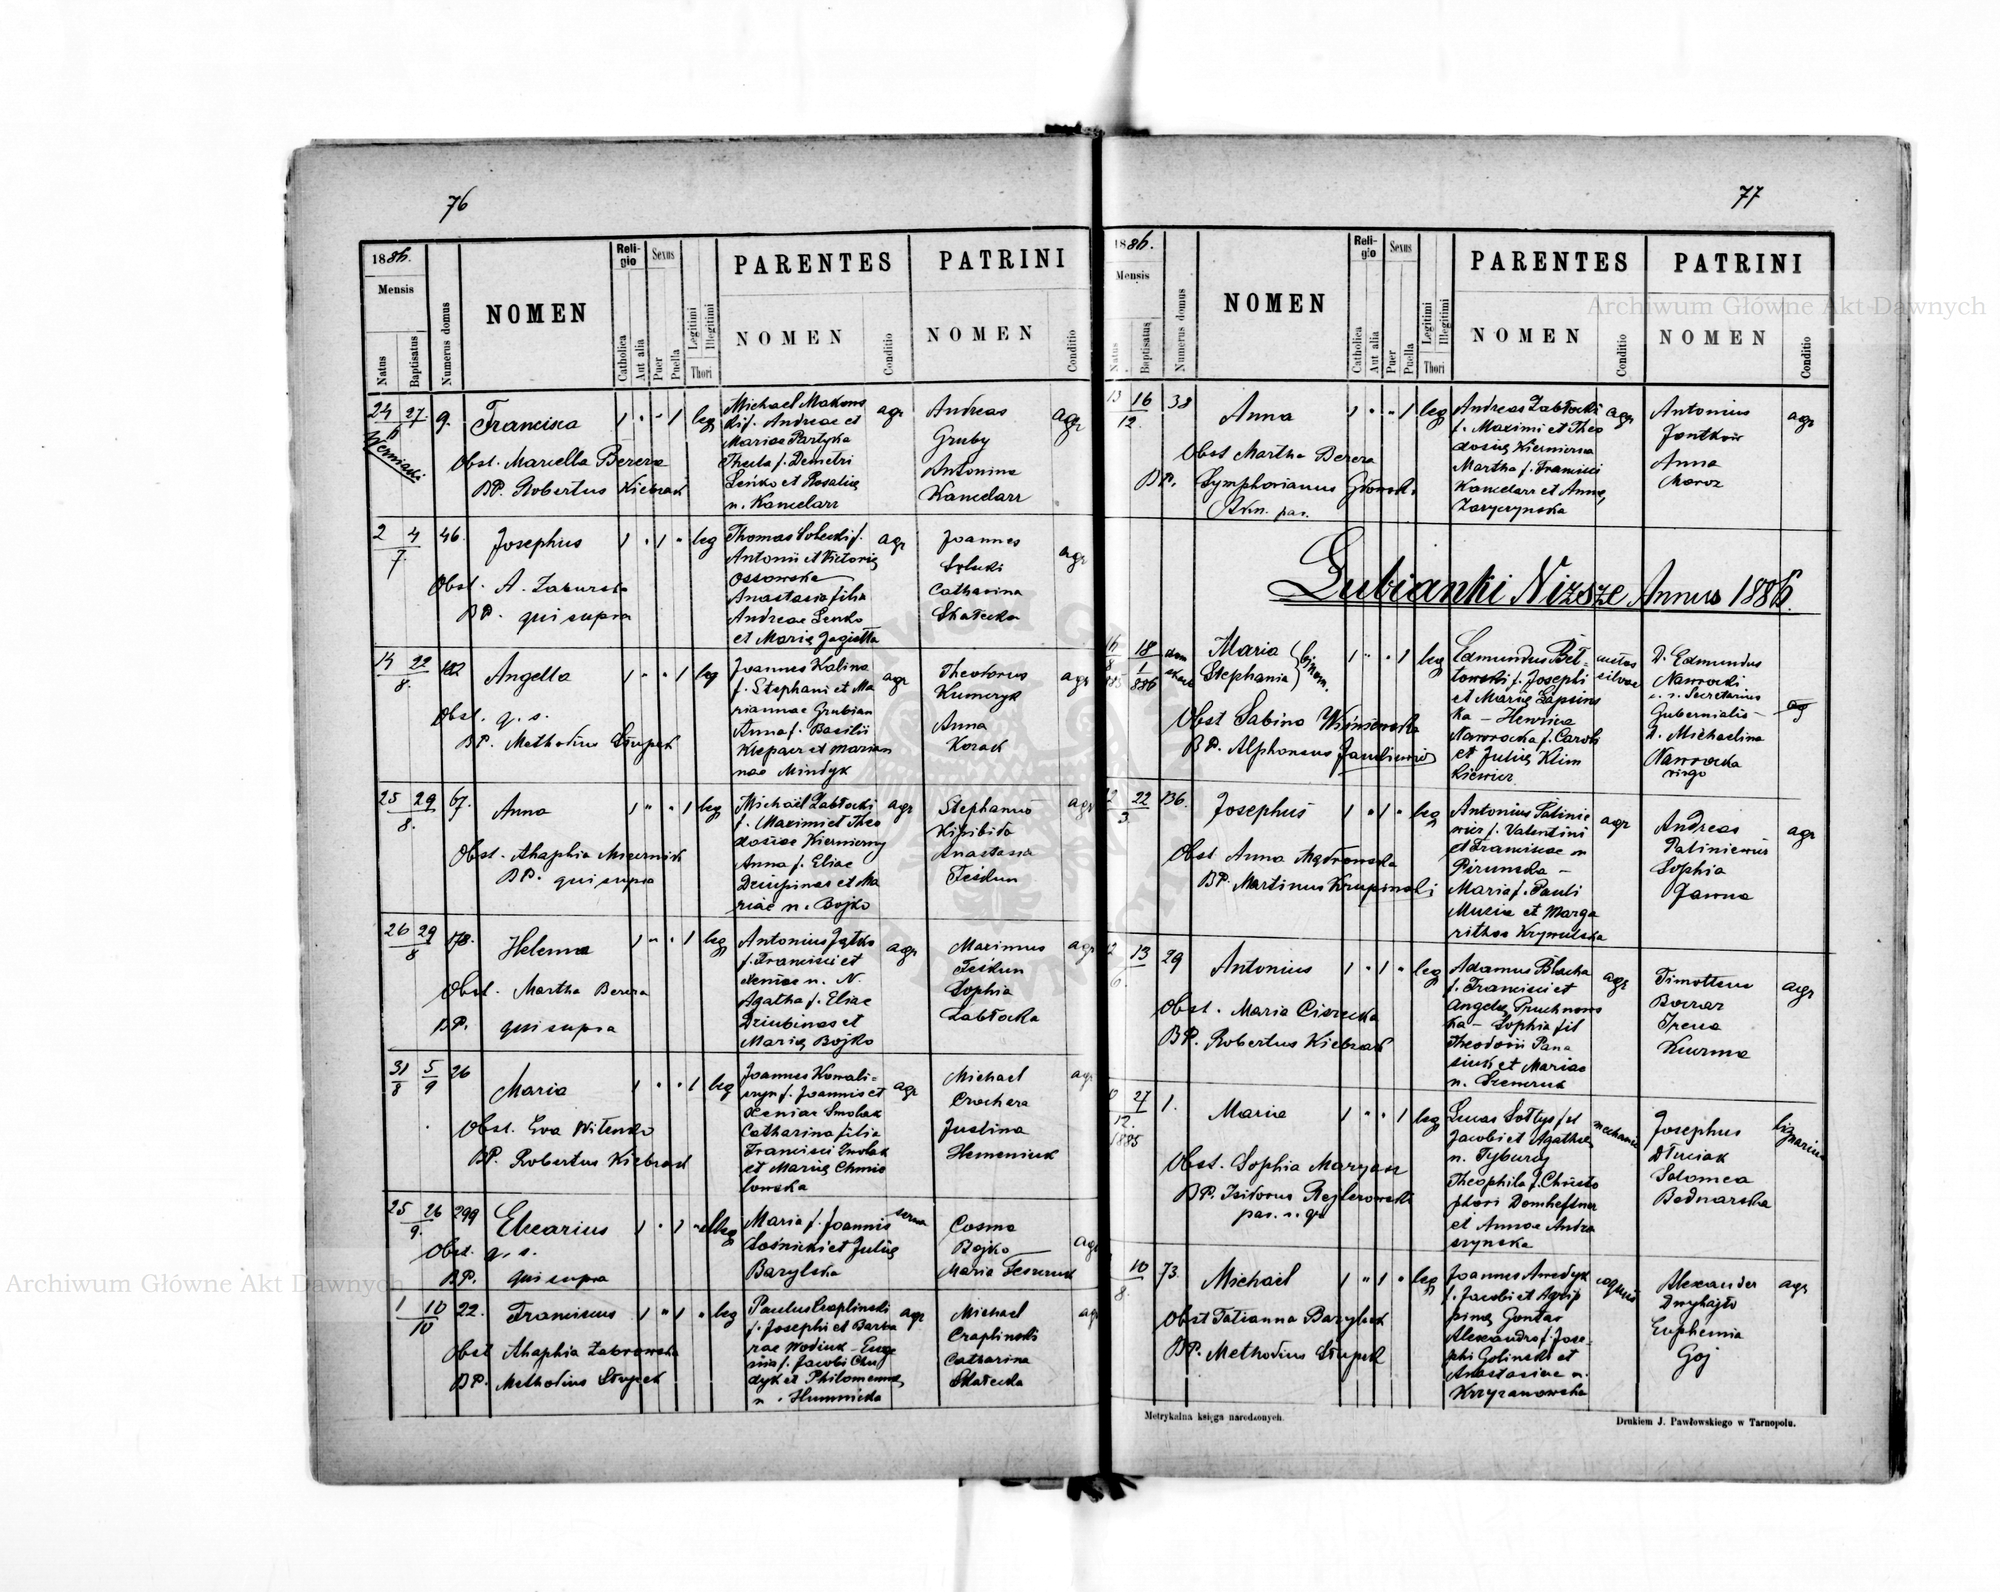 76
1886.
Mensis
Natus
Baptisatus
Numerus domus
NOMEN
Religio
Catholica
Aut alia
Sexus
Puer
Puella
Legitimi
Illegitimi
Thori
PARENTES
NOMEN
Conditio
PATRINI
NOMEN
Conditio
24 27. 9. Francisca 1 " " 1 leg
6
Obst. Marcella Berera
BP. Robertus Kiebzak
Michael Makows
ki f. Andreae et
Mariae Partyka
Thecla f. Demetri
Leńko et Rosaliae
n. Kancelarz
agr
Andreas
Gruby
Antonina
Kancelarz
agr
2 4 46. Josephus 1 " 1 " leg
7.
Obst. A. Zaburska
BP. qui supra
Thomas Sobecki f.
Antonii et Victoriae
Ossowska
Anastasia filia
Andreae Lenko
et Mariae Jagiełła
agr
Joannes
Catharina
Skałecka
agr
14 22 102 Angella 1 " " 1 leg
8.
Obst. q. s.
BP. Methodius Słupek
Joannes Kalina
f. Stephani et Ma
riannae Grubian
Anna f. Basilii
et Marian
nae Mindyk
agr
Theodorus
Anna
Kozack
agr
25 29 67. Anna 1 " " 1 leg
8.
Obst. Ahaphia
BP. qui supra
Michael Zabłocki
f. Maximi et Theo
dosiae Kiernierny
Anna f. Eliae
Dziubinas et Ma
riae n. Bojko
agr
Stephanus
Anastasia
Feśkun
agr
26 29 178. Helenna 1 " " 1 leg
8
Obst. Martha Berera
BP. qui supra
Antonius
f. Francisci et
Xeniae n. N.
Agatha f. Eliae
Dziubinas et
Mariae Bojko
agr
Maximus
Feśkun
Sophia
Zabłocka
agr
31 5 26 Maria 1 " " 1 leg
8 9
Obst. Eva Witenko
BP. Robertus Kiebzak
Joannes Kowali-
szyn f. Joannis et
Xeniae Smolak
Catharina filia
Francisci
et Mariae Chmie
lowska
agr
Michael
Crochera
Justina
Hemeniuk
agr
25 26 299 Eleearius 1 " 1 " illeg
9.
Obst. q. s.
BP. qui supra
Maria f. Joannis
Łośnicki et Juliae
Barylska
serva
Cosma
Bojko
Maria
agr
1 10 22. Franciscus 1 " 1 " leg
10
Obst Ahaphia Zaborowska
BP. Methodius Słupek
Paulus Czaplinski
f. Josephi et Barba
rae Wodiuk - Euge
nia f. Jacobi Chu
dyk et Philomenae
n.
agr
Michael
Czaplinski
Catharina
Skałecka
agr
77
1886.
Mensis
Natus
Baptisatus
Numerus domus
NOMEN
Religio
Catholica
Aut alia
Sexus
Puer
Puella
Legitimi
Illegitimi
Thori
PARENTES
NOMEN
Conditio
PATRINI
NOMEN
Conditio
13 16 38 Anna 1 " " 1 leg
12.
Obst Martha Berera
BP. Symphorianus
Adm. par.
Andreas Zabłocki
f. Maximi et Theo
dosiae Kiernierna
Martha f. Francisci
Kancelarz et Annae
Zaryczynska
agr
Antonius
Jontków
Anna
Moroz
agr
Łubianki Niższe Annus 1886.
16 18
8 1
885 886
Maria
Stephania } binom.
1 " " 1 leg
Obst Sabina Wiśniewska
BP. Alphonsus
Edmundus Beł-
towski f. Josephi
et Mariae Lapins
ka - Henrica
Nawrocka f. Caroli
et Juliae Klim
kiewicz
custos
silvae
D. Edmundus
Nawrocki
c. r. Secretarius
Gubernialis -
D. Michaelina
Nawrocka
virgo
12 22 136. Josephus 1 " 1 " leg
3.
Obst Anna Mądrowska
BP. Martinus Krupinski
Antonius Paliniе
wicz f. Valentini
et Franciscae n
Pirunska -
Maria f. Pauli
Muzia et Marga
rithae Krywulska
agr
Andreas
Paliniewicz
Sophia
Jawna
agr
12 13 29 Antonius 1 " 1 " leg
6.
Obst. Maria Cisrecka
BP. Robertus Kiebzak
Adamus Blacha
f. Francisci et
Angelae Pruchnows
ka - Sophia fil
Theodorii Pana
siuk et Mariae
n. Szewczuk
agr
Timotheus
Borraz
Irena
Kuzma
agr
27 1. Maria 1 " " 1 leg
12.
1885
Obst. Sophia Maryasz
BP. Isidorus Rejterowski
par. r. gr
Lucas Sołtys fil
Jacobi et Agathae
n. Tyburcy
Theophila f. Christo
phori Domhefsner
et Annae Andra
szynska
mechanic
Josephus
Dłusiak
Salomea
Bednarska
lignarius
10 73. Michael 1 " 1 " leg
8.
Obst Tatianna Barylack
BP. Methodius Słupek
Joannes Awedyk
f. Jacobi et Agrip
pinae Gontar
Alexandra f. Jose-
phi Golinski et
Anastasiae n.
Krzyzanowska
coquus
Alexander
Dmyhajło
Euphemia
Goj
agr
Metrykalna księga narodzonych.
Drukiem J. Pawłowskiego w Tarnopolu.
Archiwum Główne Akt Dawnych
Archiwum Główne Akt Dawnych